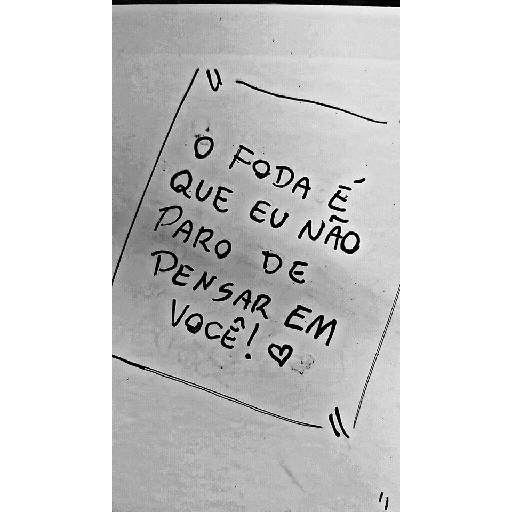 "
O FODA É
QUE EU NÃO
PARO DE
PENSAR EM
VOCÊ! ♡
"